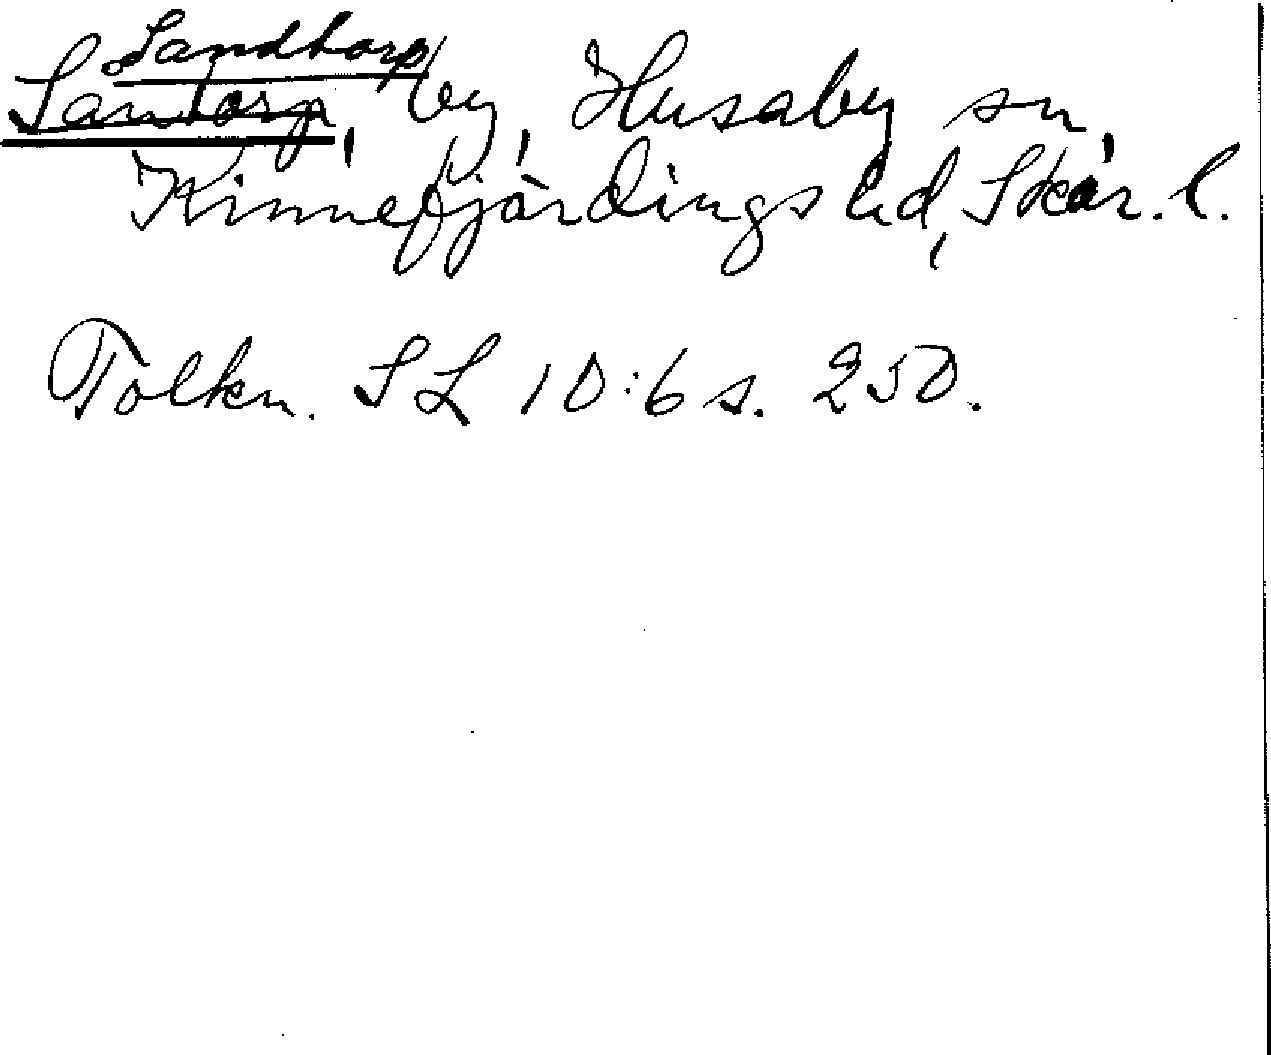 Sandtorp
Santorp, by, Husaby sn,
Kinnefjärdings hd, Skar. l.
Tolkn. SL 10:6 s. 250.